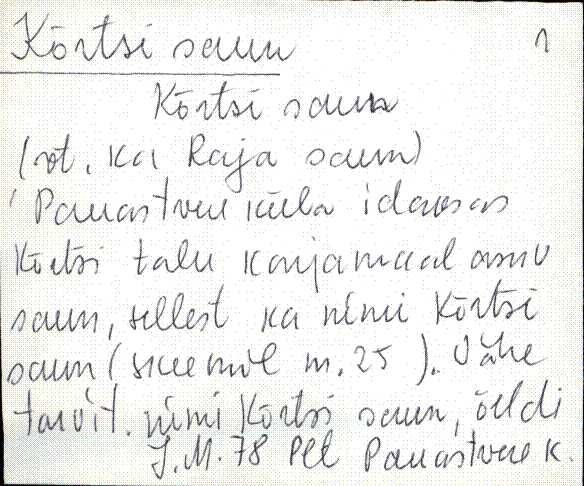 Kõrtsi saun 1
Kõrtsi saun
(vt. ka Raja saun)
Pauastvere küla idaosas
Kõrtsi talu karjamaal asuv
saun, sellest ka nimi Kõrtsi
saun (skeemil m. 25). Vähe
tarvit. nimi Kõrtsi saun, öeldi
J.M. 78 Plt Pauastvere k.